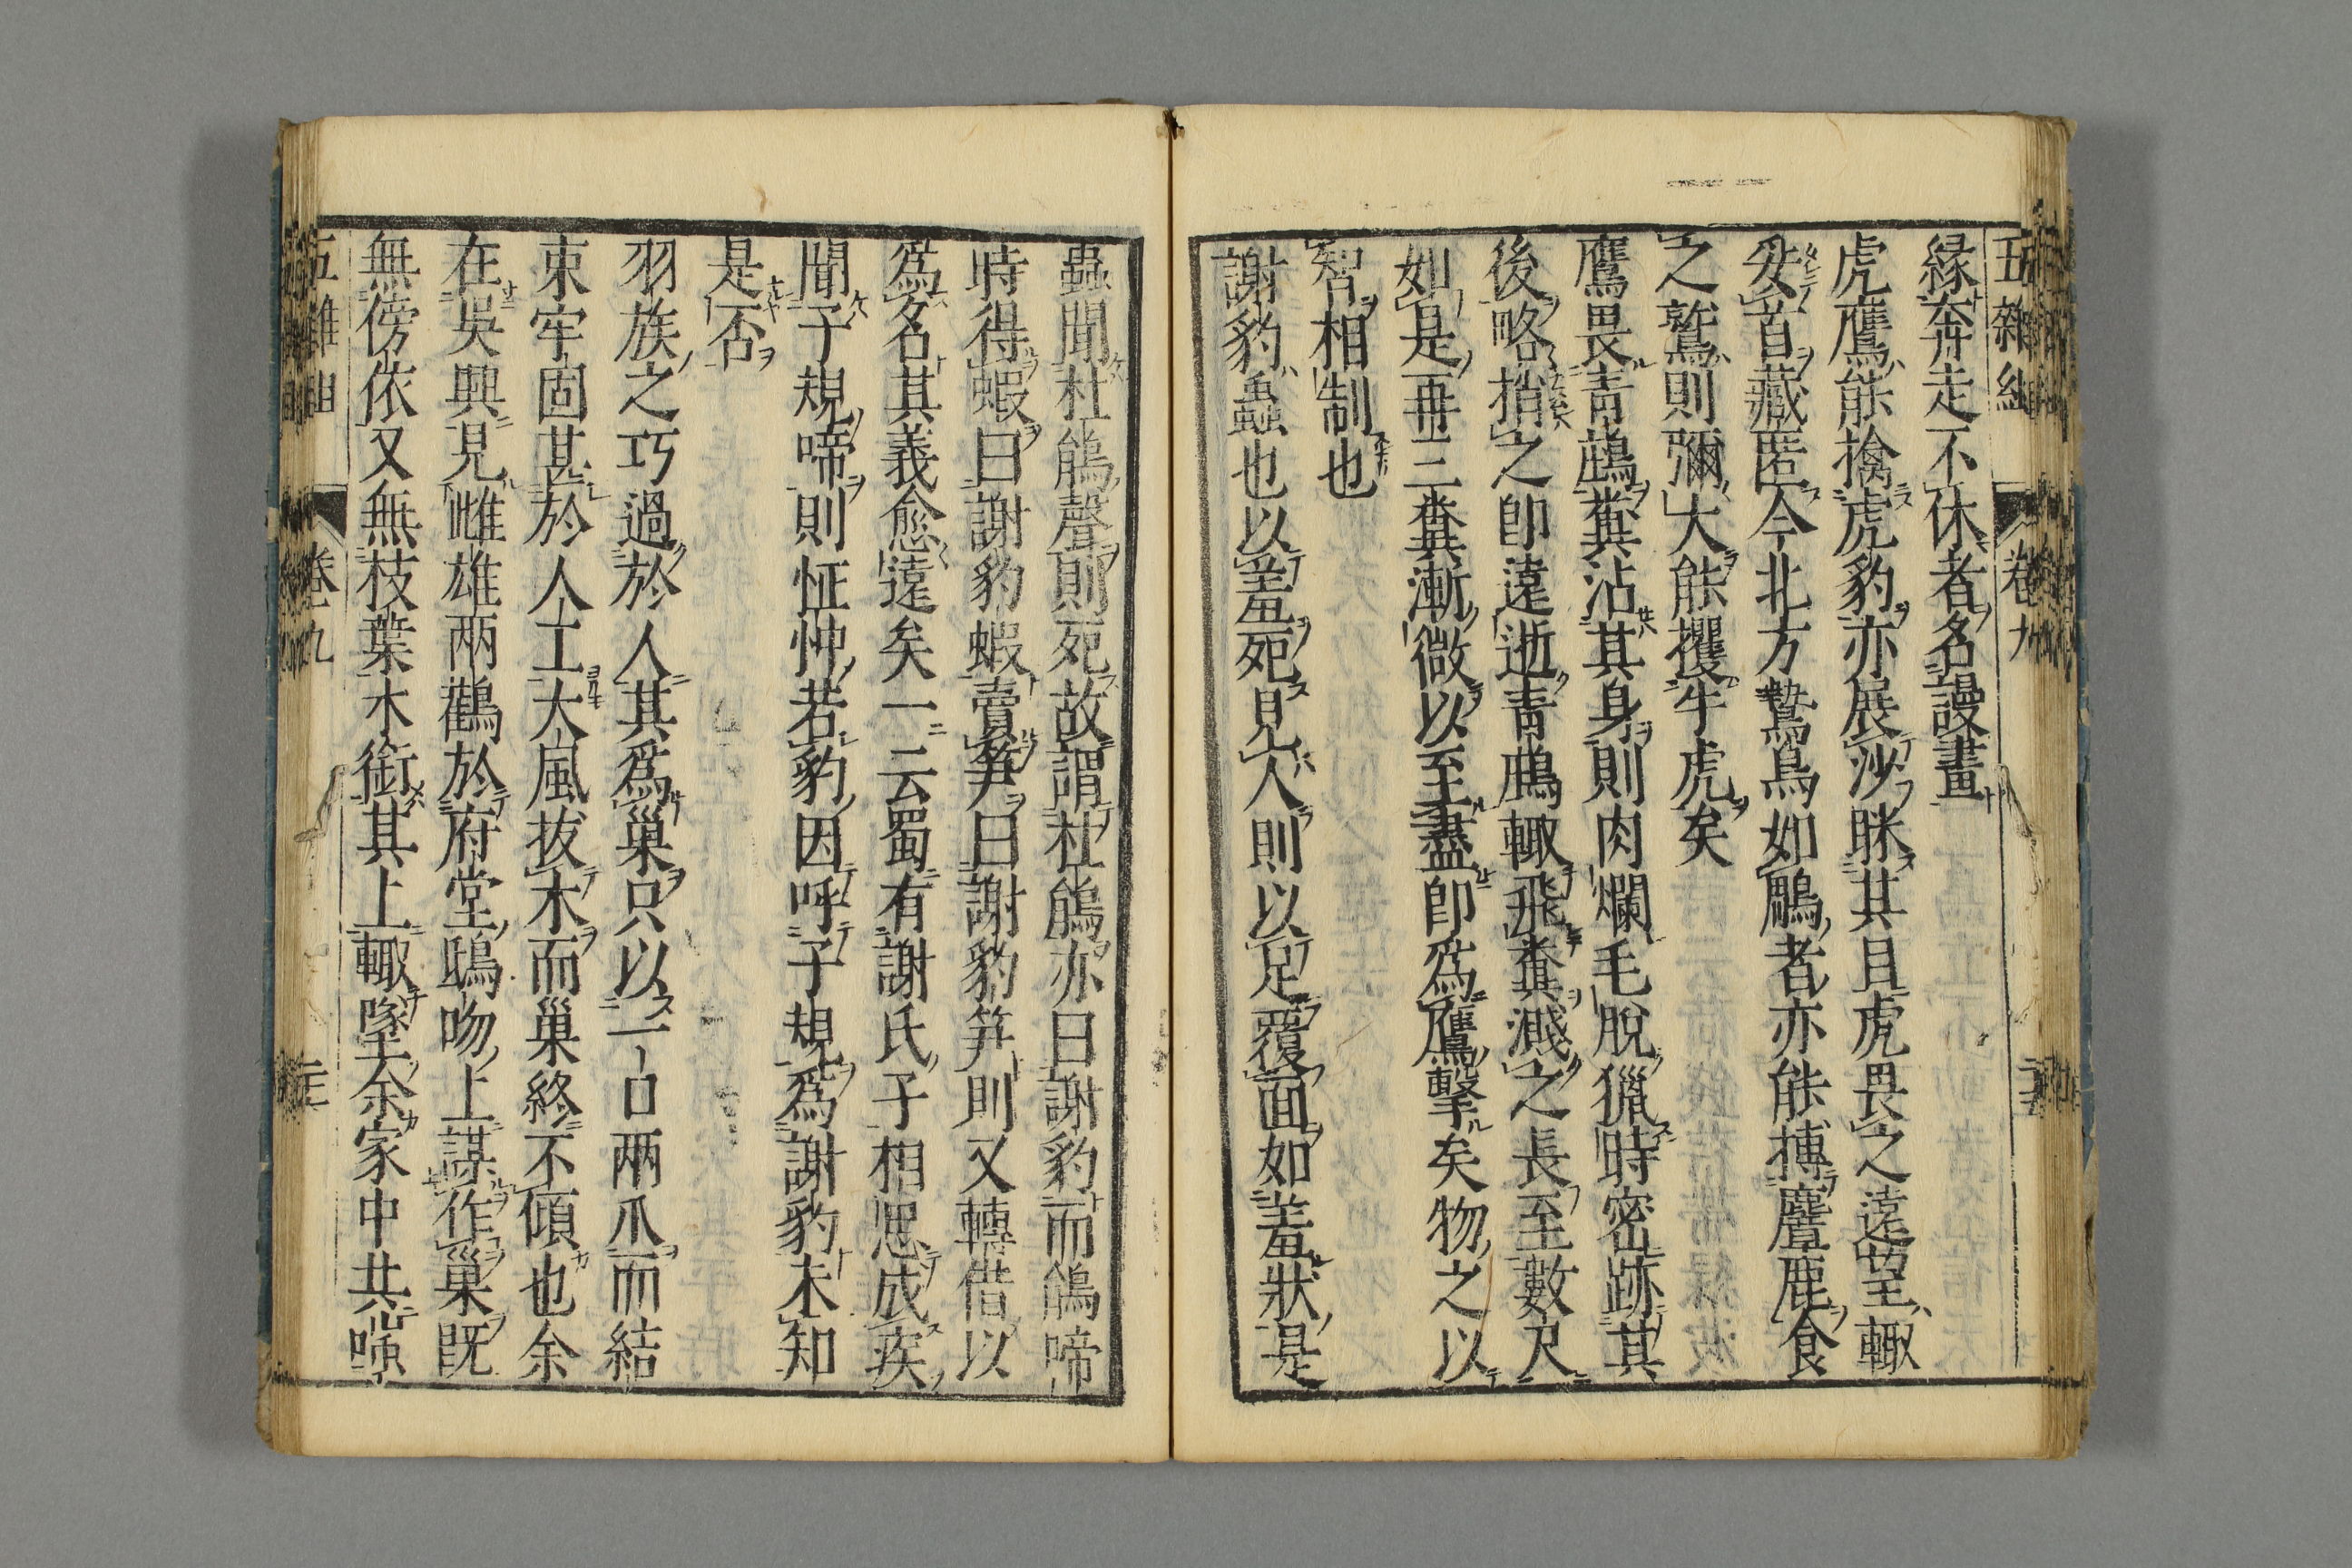 五雜組 卷九
緣奔走不休者名謾畫
虎鷹能擒虎豹亦展沙眯其目虎畏之遠望輒
妥首藏匿今北方鷙鳥如鵰者亦能搏麞鹿食
之鷲則彌大能攫牛虎矣
鷹畏青鵰糞沾其身則肉爛毛脫獵時密跡其
後略捎之卽遠逝青鵰輒飛糞濺之長至數尺
如是再三糞漸微以至盡卽爲鷹擊矣物之以
智相制也
謝豹蟲也以羞死見人則以足覆面如羞狀是
蟲聞杜鵑聲則死故謂杜鵑亦曰謝豹而鵑啼
時得蝦曰謝豹蝦賣筍曰謝豹笋則又轉借以
爲名其義愈遠矣一云蜀有謝氏子相思成疾
聞子規啼則怔忡若豹因呼子規爲謝豹未知
是否
羽族之巧過於人其爲巢只以一口兩爪而結
束牢固甚於人工大風拔木而巢終不傾也余
在吳興見雌雄兩鸛於府堂鴟吻上謀作巢旣
無傍依又無枝葉木銜其上輒墜余家中共嗤
五雜組 卷九